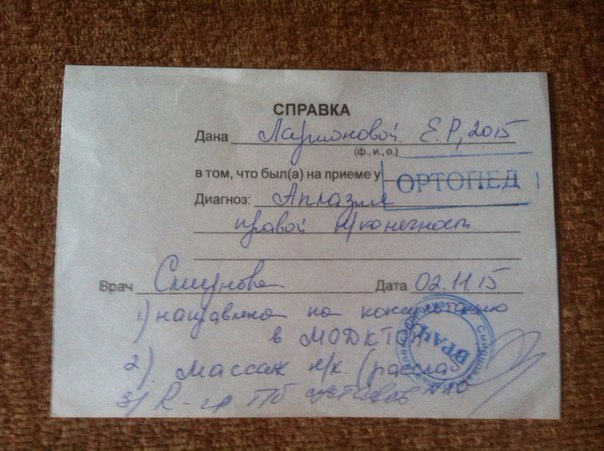 СПРАВКА
Дана Ларионовой Е.Р, 2015
(ф., и., о.)
в том, что был(а) на приеме у ОРТОПЕД
Диагноз: Аплазия
правой н/конечност
Врач Смирнова Дата 02.11.15
1) направлена на консультацию
в МОДКТОБ
2). Массаж н/к. (рассла
3) R-гр т/б суставов
ВРАЧ